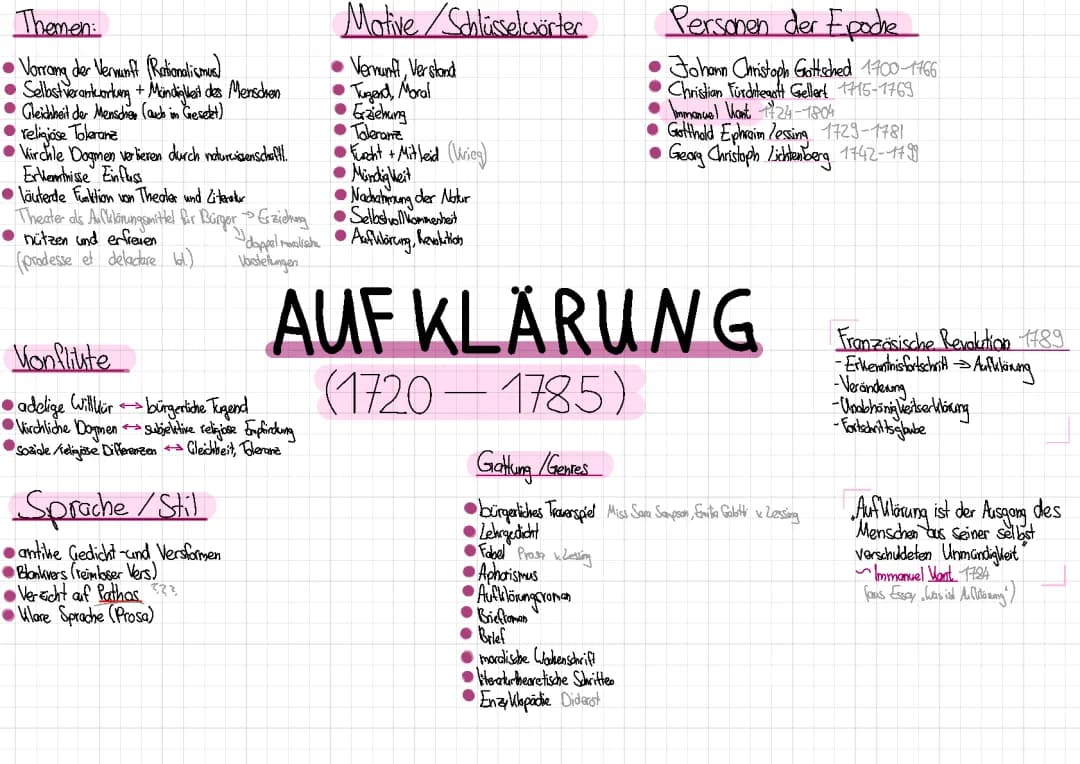 Themen:
Vorrang der Vernunft (Rationalismus)
Selbstverantwortung + Mündigkeit des Menschen
Gleichheit der Menschen (auch im Gesetz)
religiöse Toleranz
Kirchle Dogmen verlieren durch naturwissenschaftl.
Erkenntnisse Einfluss
läuternde Funktion von Theater und Literatur
Theater als Aufklärungsmittel für Bürger → Erziehung
doppel moralische Vorstellungen
nützen und erfreuen
(prodesse et delectare lol)
Motive/Schlüsselwörter
Vernunft, Verstand
Tugend, Moral
Erziehung
Toleranz
Furcht + Mitleid (Krieg)
Mündigkeit
Nachahmung der Natur
Selbstvollkommenheit
Aufklärung, Revolution
Personen der Epoche
Johann Christoph Gottsched 1700-1766
Christian Fürchtegott Gellert 1715-1769
Immanuel Kant 1724-1804
Gotthold Ephraim Lessing 1729-1781
Georg Christoph Lichtenberg 1742-1799
AUFKLÄRUNG
(1720 – 1785)
Konflikte
adelige Willkür ↔ bürgerliche Tugend
Kirchliche Dogmen ↔ subjektive religiöse Empfindung
soziale/religiöse Differenzen ↔ Gleichheit, Toleranz
Französische Revolution 1789
- Erkenntnisfortschritt → Aufklärung
- Veränderung
- Unabhängigkeitserklärung
- Fortschrittsglaube
Sprache / Stil
antike Gedicht- und Versformen
Blankvers (reimloser Vers)
Verzicht auf Pathos ???
Klare Sprache (Prosa)
Gattung/Genres
bürgerliches Trauerspiel Miss Sara Sampson, Emilia Galotti v. Lessing
Lehrgedicht
Fabel Prosa v. Lessing
Aphorismus
Aufklärungsroman
Briefroman
Brief
moralische Wochenschrift
literaturtheoretische Schriften
Enzyklopädie Diderot
„Aufklärung ist der Ausgang des
Menschen aus seiner selbst
verschuldeten Unmündigkeit"
~ Immanuel Kant 1784
(aus Essay „Was ist Aufklärung")